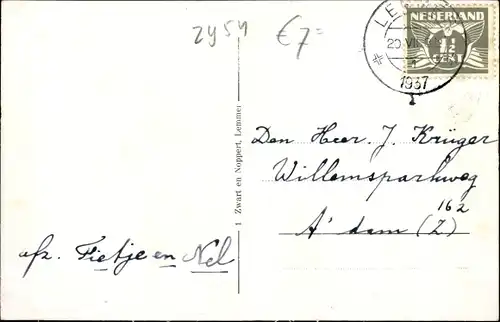 2454
€7=
NEDERLAND
1½
CENT
20 VII
1937
1 Zwart en Noppert, Lemmer
Den Heer. J. Krüger
Willemsparkweg
162
A'dam (Z)
afz. Fietje en Nel